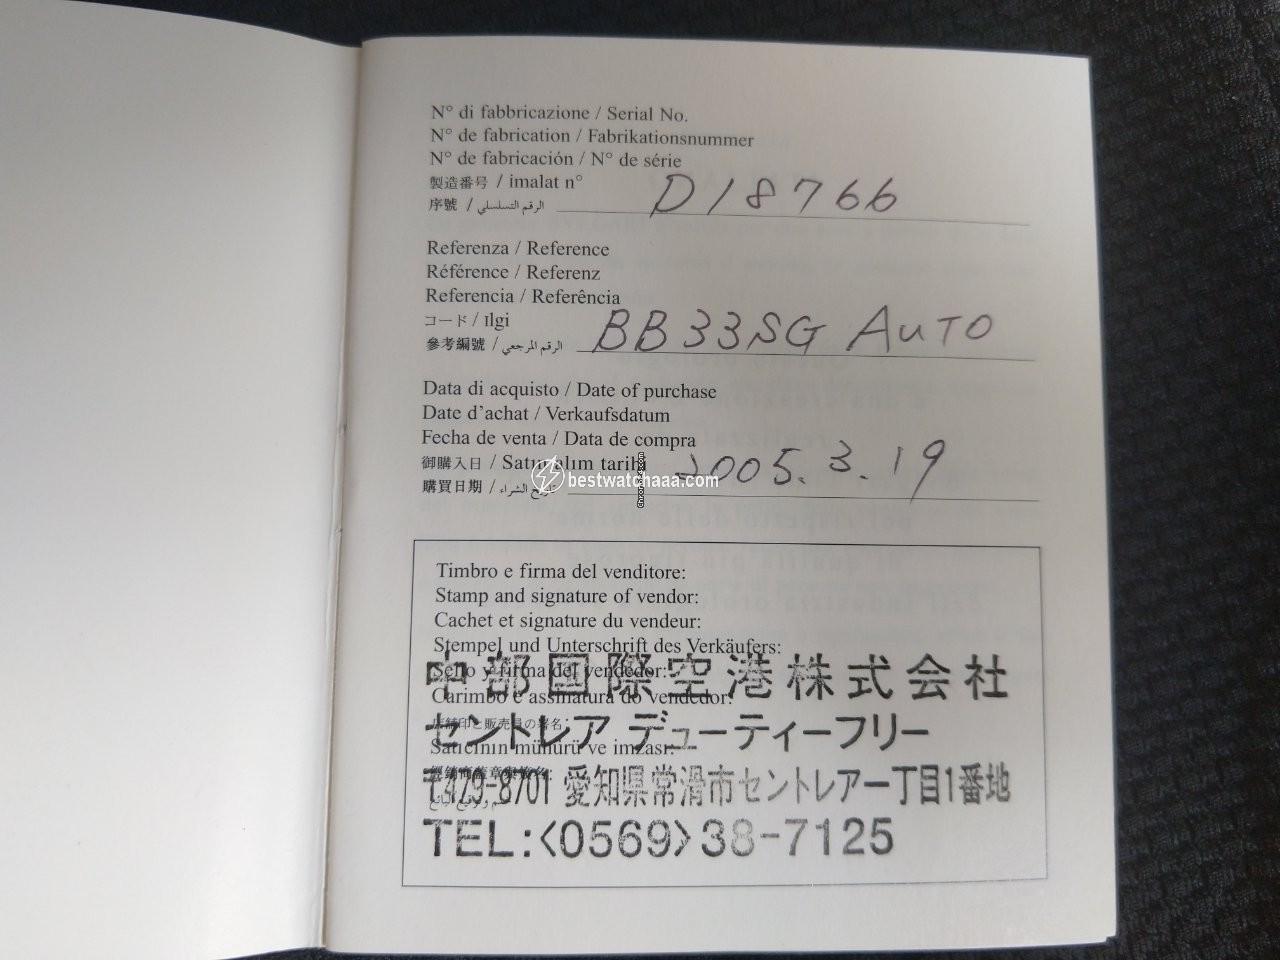 N° di fabbricazione / Serial No.
N° de fabrication / Fabrikationsnummer
N° de fabricación / N° de série
製造番号 / imalat n°
序號 / الرقم التسلسلي
D18766
Referenza / Reference
Référence / Referenz
Referencia / Referência
コード / Ilgi
參考編號 / الرقم المرجعي
BB33SG AUTO
Data di acquisto / Date of purchase
Date d'achat / Verkaufsdatum
Fecha de venta / Data de compra
御購入日 / Satın alım tarihi
購買日期 / تاريخ الشراء
2005.3.19
bestwatchaaa.com
Timbro e firma del venditore:
Stamp and signature of vendor:
Cachet et signature du vendeur:
Stempel und Unterschrift des Verkäufers:
Sello y firma del vendedor:
中部国際空港株式会社
Carimbo e assinatura do vendedor:
セントレア デューティーフリー
Satıcının mührü ve imzası:
〒479-8701 愛知県常滑市セントレアー丁目1番地
TEL:<0569>38-7125